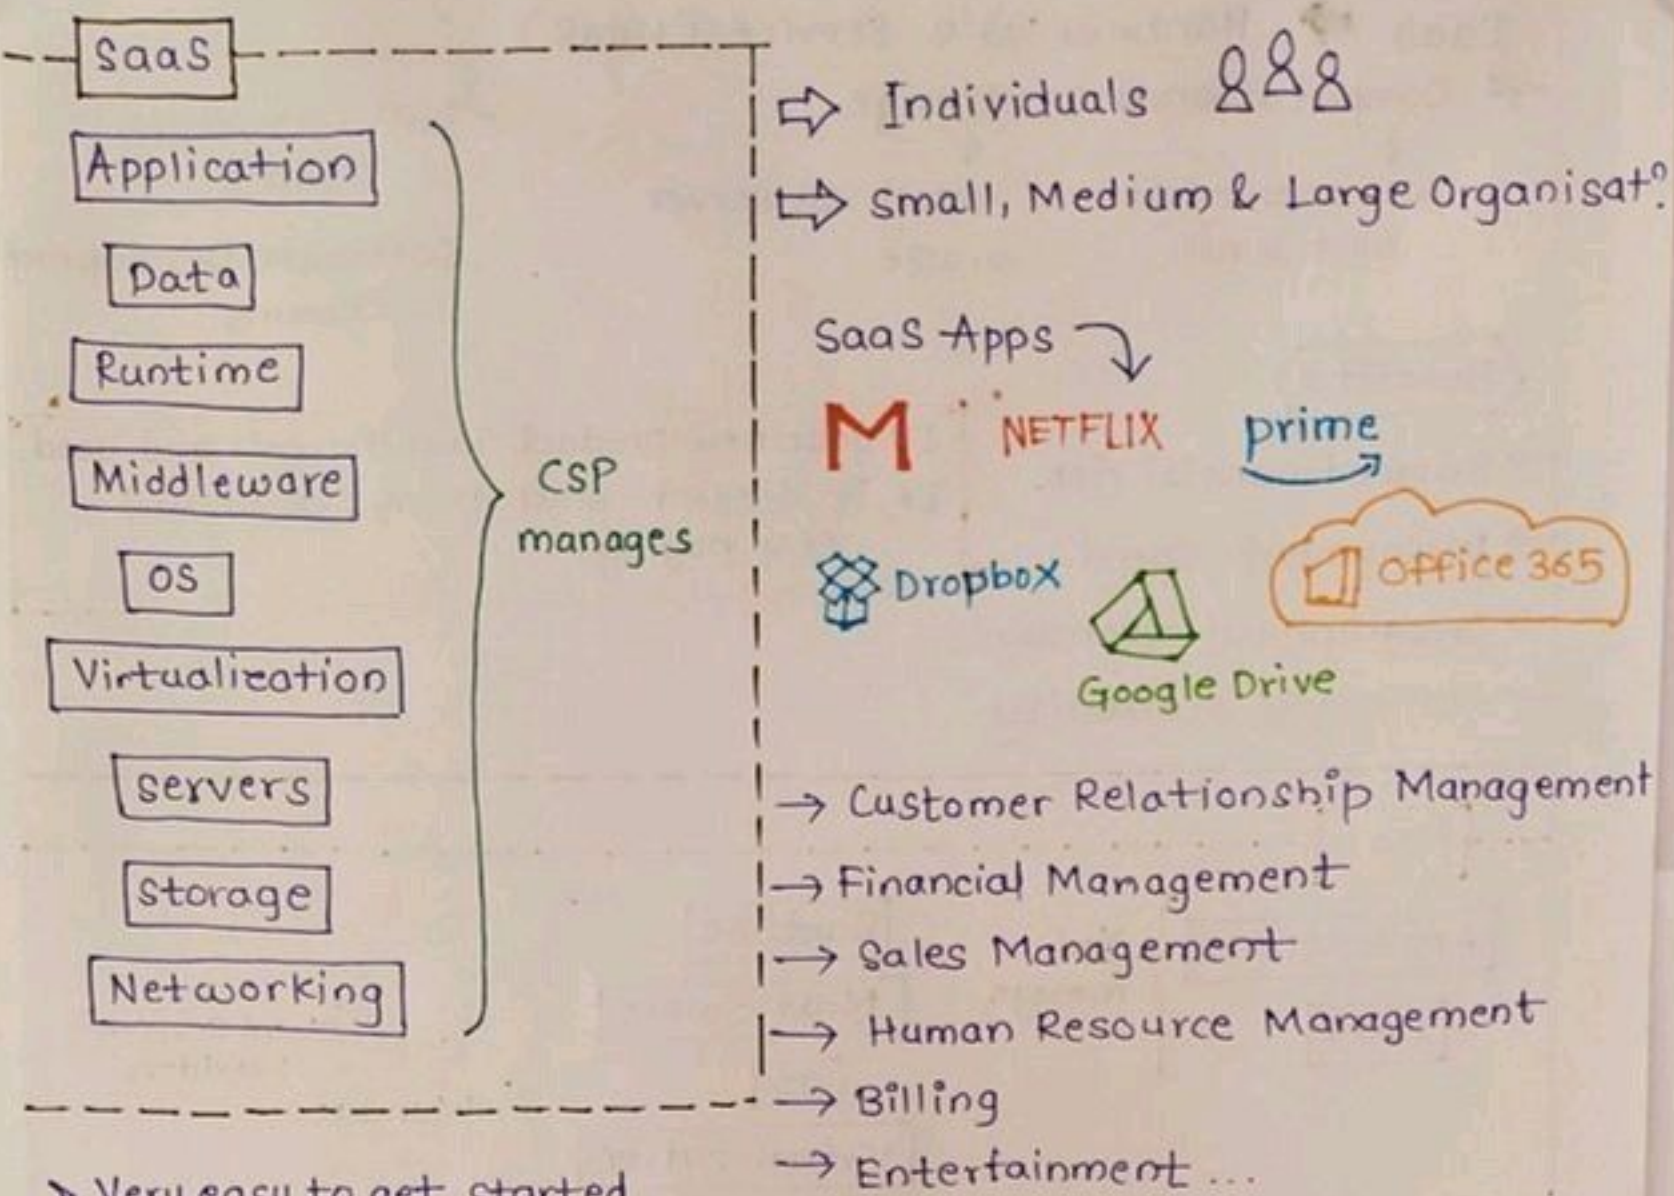 SaaS
Application
Data
Runtime
Middleware
OS
Virtualization
Servers
Storage
Networking
CSP
manages
Individuals
Small, Medium & Large Organisatⁿ
SaaS Apps
M
NETFLIX
prime
Dropbox
Office 365
Google Drive
→ Customer Relationship Management
→ Financial Management
→ Sales Management
→ Human Resource Management
→ Billing
→ Entertainment ...
Very easy to get started